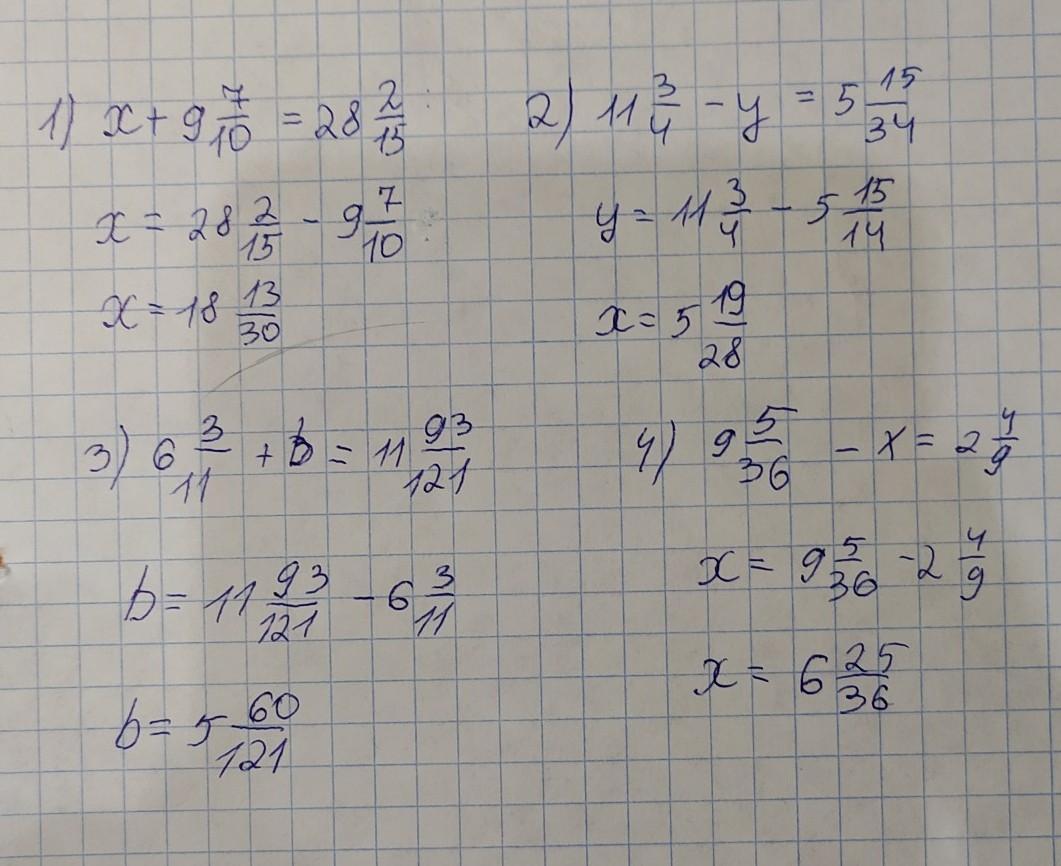 1) x + 9 7/10 = 28 2/15
x = 28 2/15 - 9 7/10
x = 18 13/30
2) 11 3/4 - y = 5 15/34
y = 11 3/4 - 5 15/14
x = 5 19/28
3) 6 3/11 + b = 11 93/121
b = 11 93/121 - 6 3/11
b = 5 60/121
4) 9 5/36 - x = 2 4/9
x = 9 5/36 - 2 4/9
x = 6 25/36